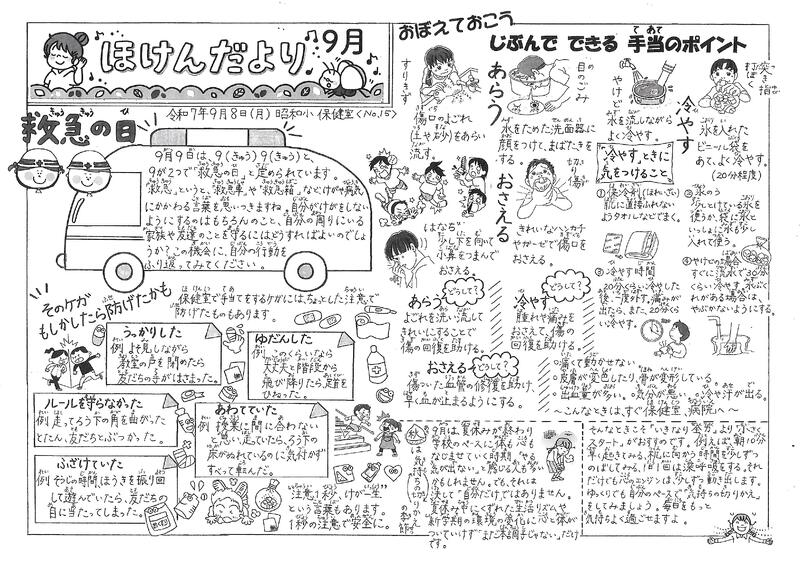 ほけんだより
9月
令和7年9月8日(月) 昭和小 保健室〈No.15〉
救急の日
9月9日は、9(きゅう)9(きゅう)と、
9が2つで「救急の日」と定められています。
「救急」というと、「救急車」や「救急箱」などけがや病気
にかかわる言葉を思いつきますね。自分がけがをしない
ようにするのはもちろんのこと、自分の周りにいる
家族や友達のことを守るにはどうすればよいのでしょ
うか？この機会に、自分の行動を
ふり返ってみてください。
そのケガ
もしかしたら防げたかも
保健室で手当てをするケガには、ちょっとした注意で
防げたものもあります。
うっかりした
例 よそ見しながら
教室の戸を閉めたら
友だちの手がはさまった。
ゆだんした
例 このくらいなら
大丈夫と階段から
飛び降りたら、足首を
ひねった。
ルールを守らなかった
例 走ってろう下の角を曲がった
とたん、友だちとぶつかった。
あわてていた
例 授業に間に合わない
と思い、走っていたら、ろう下の
床がぬれているのに気付かず
すべって転んだ。
ふざけていた
例 そうじの時間、ほうきを振り回
して遊んでいたら、友だちの
目に当たってしまった。
「注意1秒、けが一生」
という言葉もあります。
1秒の注意で安全に。
おぼえておこう
じぶんで できる 手当のポイント
すりきず
あらう
傷口のよごれ
(土や砂)をあらい
流す。
目のごみ
水をためた洗面器に
顔をつけて、まばたきを
する。
やけど
水を流しながら
よく冷やす。
冷やす
打ぼく
突き指
氷を入れた
ビニール袋を
あて、よく冷やす。
(20分程度)
おさえる
はなぢ
少し下を向いて
小鼻をつまんで
おさえる。
切り傷
きれいなハンカチ
やガーゼで傷口を
おさえる。
「冷やす」ときに
気をつけること
①保冷剤(ほれいざい)
肌に直接ふれない
ようタオルなどでまく。
②冷やす時間
20分くらい冷やした
後、一度外す。痛みが
出たら、また、20分くら
い冷やす。
③氷のう
少しとけている氷を
使うか、袋に氷と
いっしょに水も少し
入れて使う。
④やけどの場合
すぐに流水で30分
くらい冷やす。水ぶく
れがある場合は、
やぶかないようにする。
あらう
どうして?
よごれを洗い流して
きれいにすることで
傷の回復を助ける。
冷やす
どうして?
腫れや痛みを
おさえて、傷の
回復を助ける。
おさえる
どうして?
傷ついた血管の修復を助け、
早く血が止まるようにする。
○痛くて動かせない
○皮膚が変色したり、骨が変形している
○出血量が多い。○気分が悪い。○冷や汗が出る。
～こんなときは、すぐ保健室、病院へ～
9月は、夏休みが終わり
学校のペースに体も
なじませていく時期。「やる
気が出ない」と感じる人も多い
かもしれません。でも、それは
決して「自分だけ」ではありません。
夏休み中にくずれた生活リズムや、
新学期の環境の変化に心と体が
ついていけず「まだ本調子じゃない」だけ
です。
そんなときこそ「いきなり全力」より「小さく
スタート」がおすすめです。例えば、朝10分
早く起きてみる、机に向かう時間を少しずつ
のばしてみる、1日1回は深呼吸をする。それ
だけでも心のエンジンは、少しずつ動き出します。
ゆっくりでも自分のペースで「気持ちの切りかえ」
をしてみましょう。毎日をもっと
気持ちよく過ごせますよ。